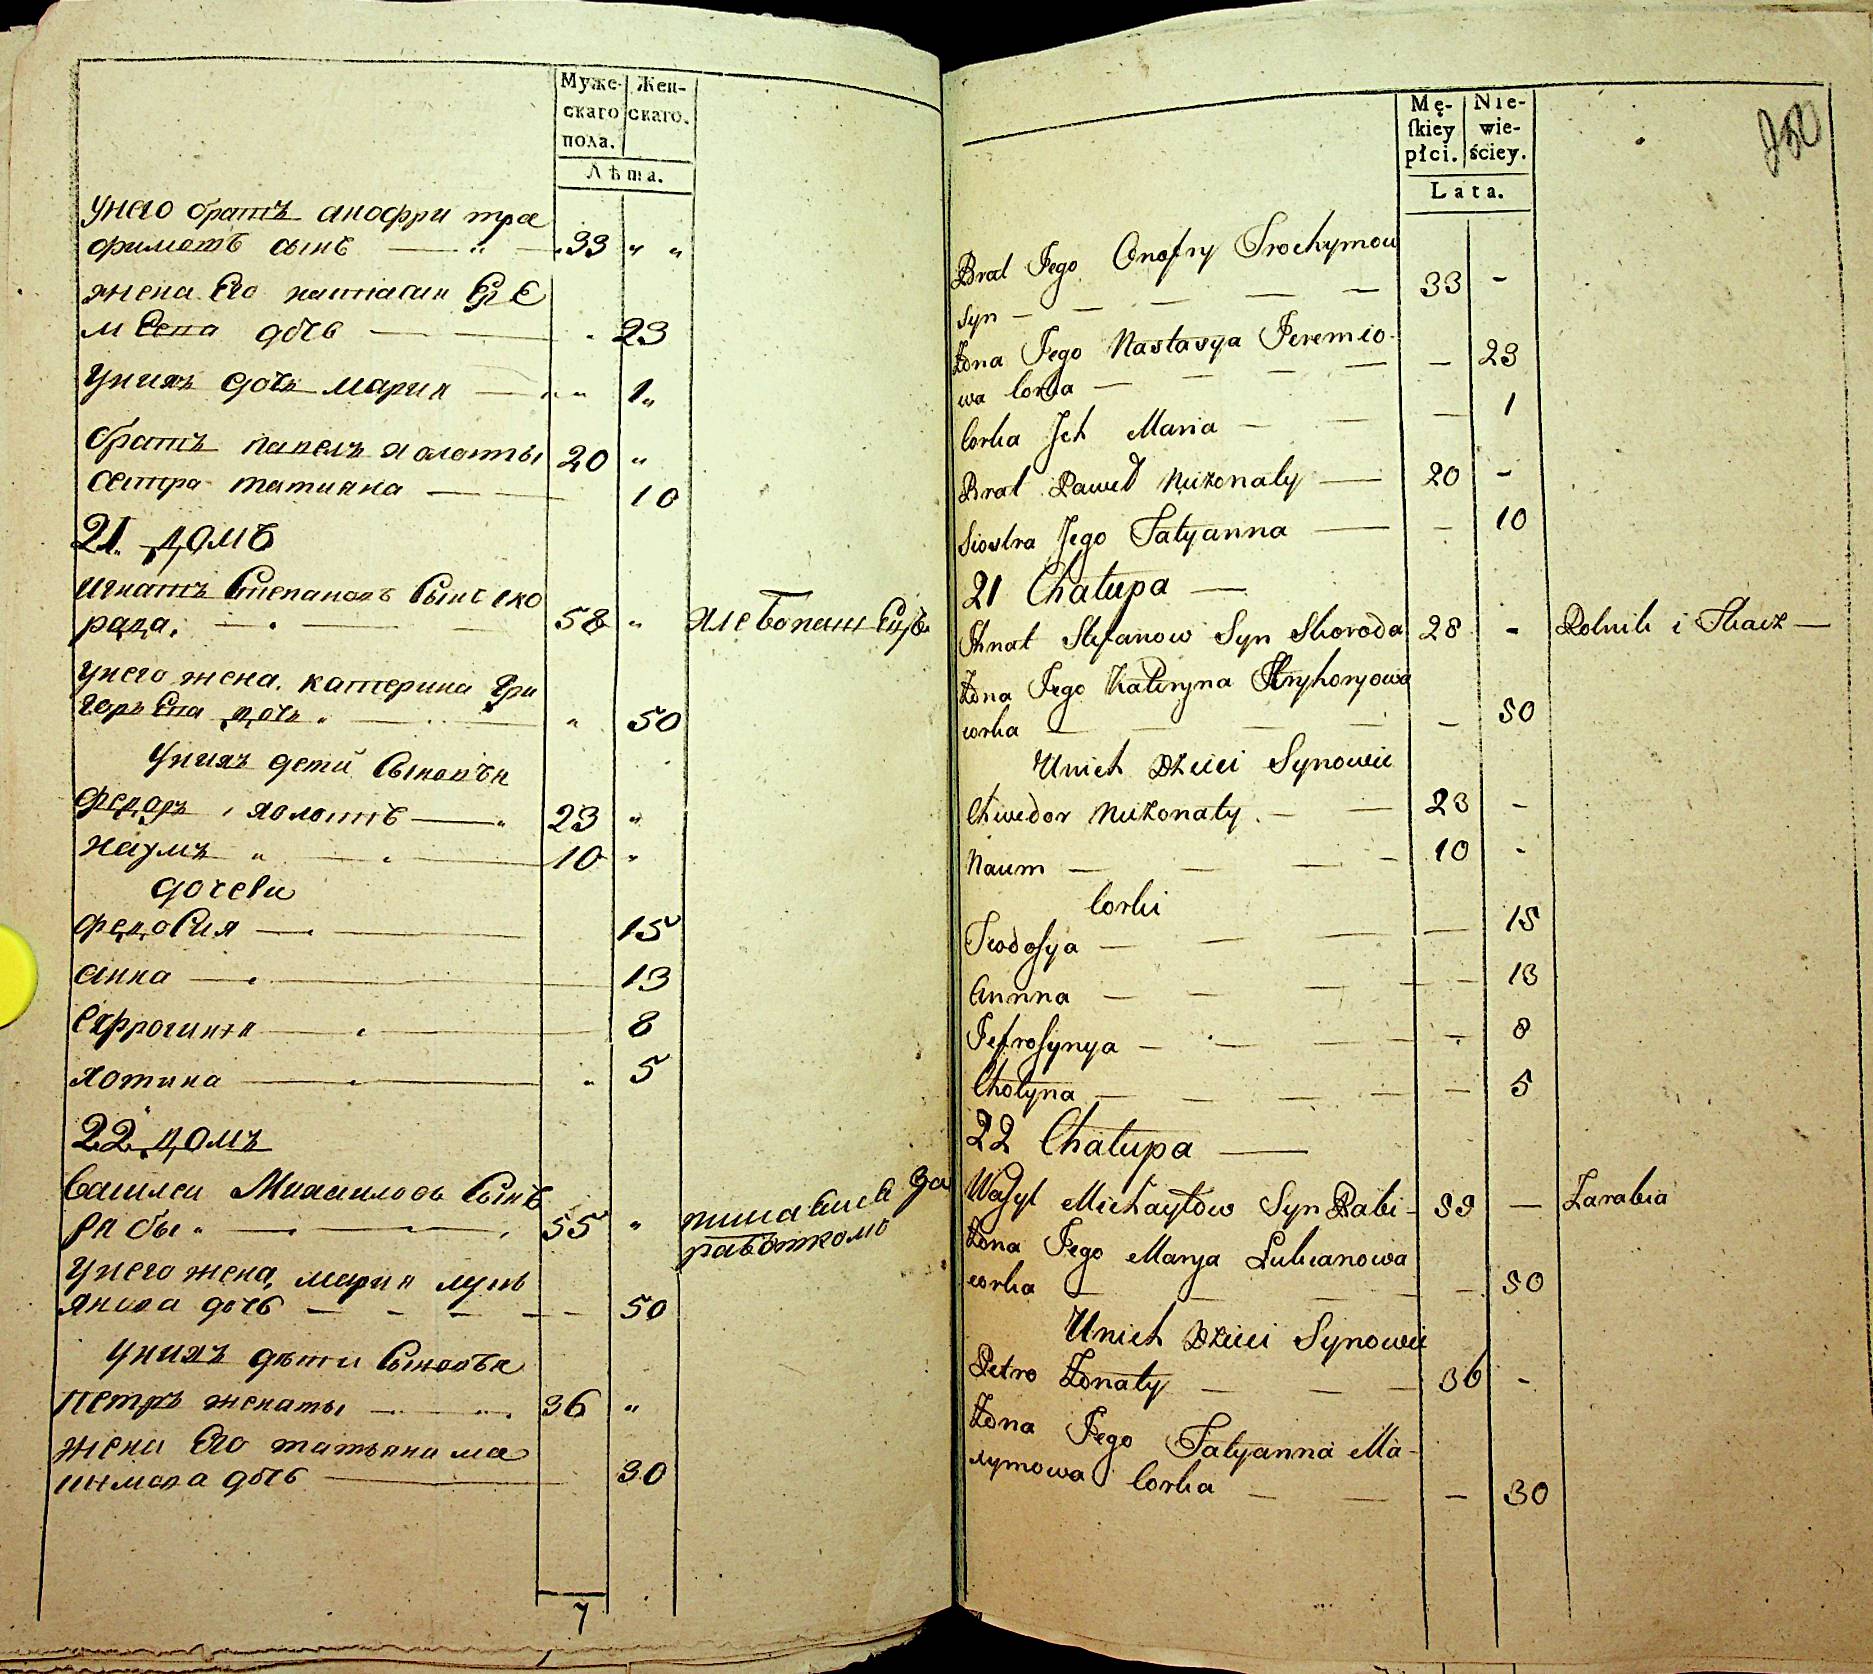 Муже- Жен-
скаго скаго.
пола.
Лѣта.
унего братъ анофри тро
фимовъ сынъ 33 " "
жена Его настасия Ере
мѣева дочь 23
унихъ дочь мария 1
братъ павелъ холосты 20 "
сестра татияна 10
21. домъ
игнатъ Степановъ Сынъ ско
рада. 58 " хлебопашецъ
унего жена. катерина гри
горьева дочь " 50
унихъ дети Сыновья
федоръ холостъ 23 "
наумъ " 10 "
дочери
федосия 15
анна 13
Ефросиния 8
хотина 5
22 домъ
василеи Михаиловъ Сынъ
рабы 55 " за
работкомъ
унего жена мария лукь
янова дочь 50
унихъ дѣти Сыновья
петръ женаты 36 "
жена Его татьяна ма
симова дочь 30
7
Mę- Nie-
ſkiey wie-
płci. ściey.
Lata.
Brat Jego Onofry Trochymow
Syn 33 -
Żona Jego Nastasya Jeremio-
wa Corka - 23
Corka Ich Maria - 1
Brat Paweł Nieżonaty 20 -
Siostra Jego Tatyanna - 10
21 Chałupa
Ihnat Stefanow Syn Skoroda 28 - Rolnik i Tkacz
Żona Jego Kateryna Hryhoryowa
corka - 50
Unich Dzieci Synowie
Chwedor Nieżonaty 23 -
Naum 10 -
Corki
Teodosya 15
Annna 13
Jefrosynya 8
Chotyna 5
22 Chałupa
Wasyl Michayłow Syn Rabi 55 - Zarabia
Żona Jego Marya Lukianowa
corka - 50
Unich Dzieci Synowie
Petro Żonaty 36 -
Żona Jego Tatyanna Ma-
xymowa Corka - 30